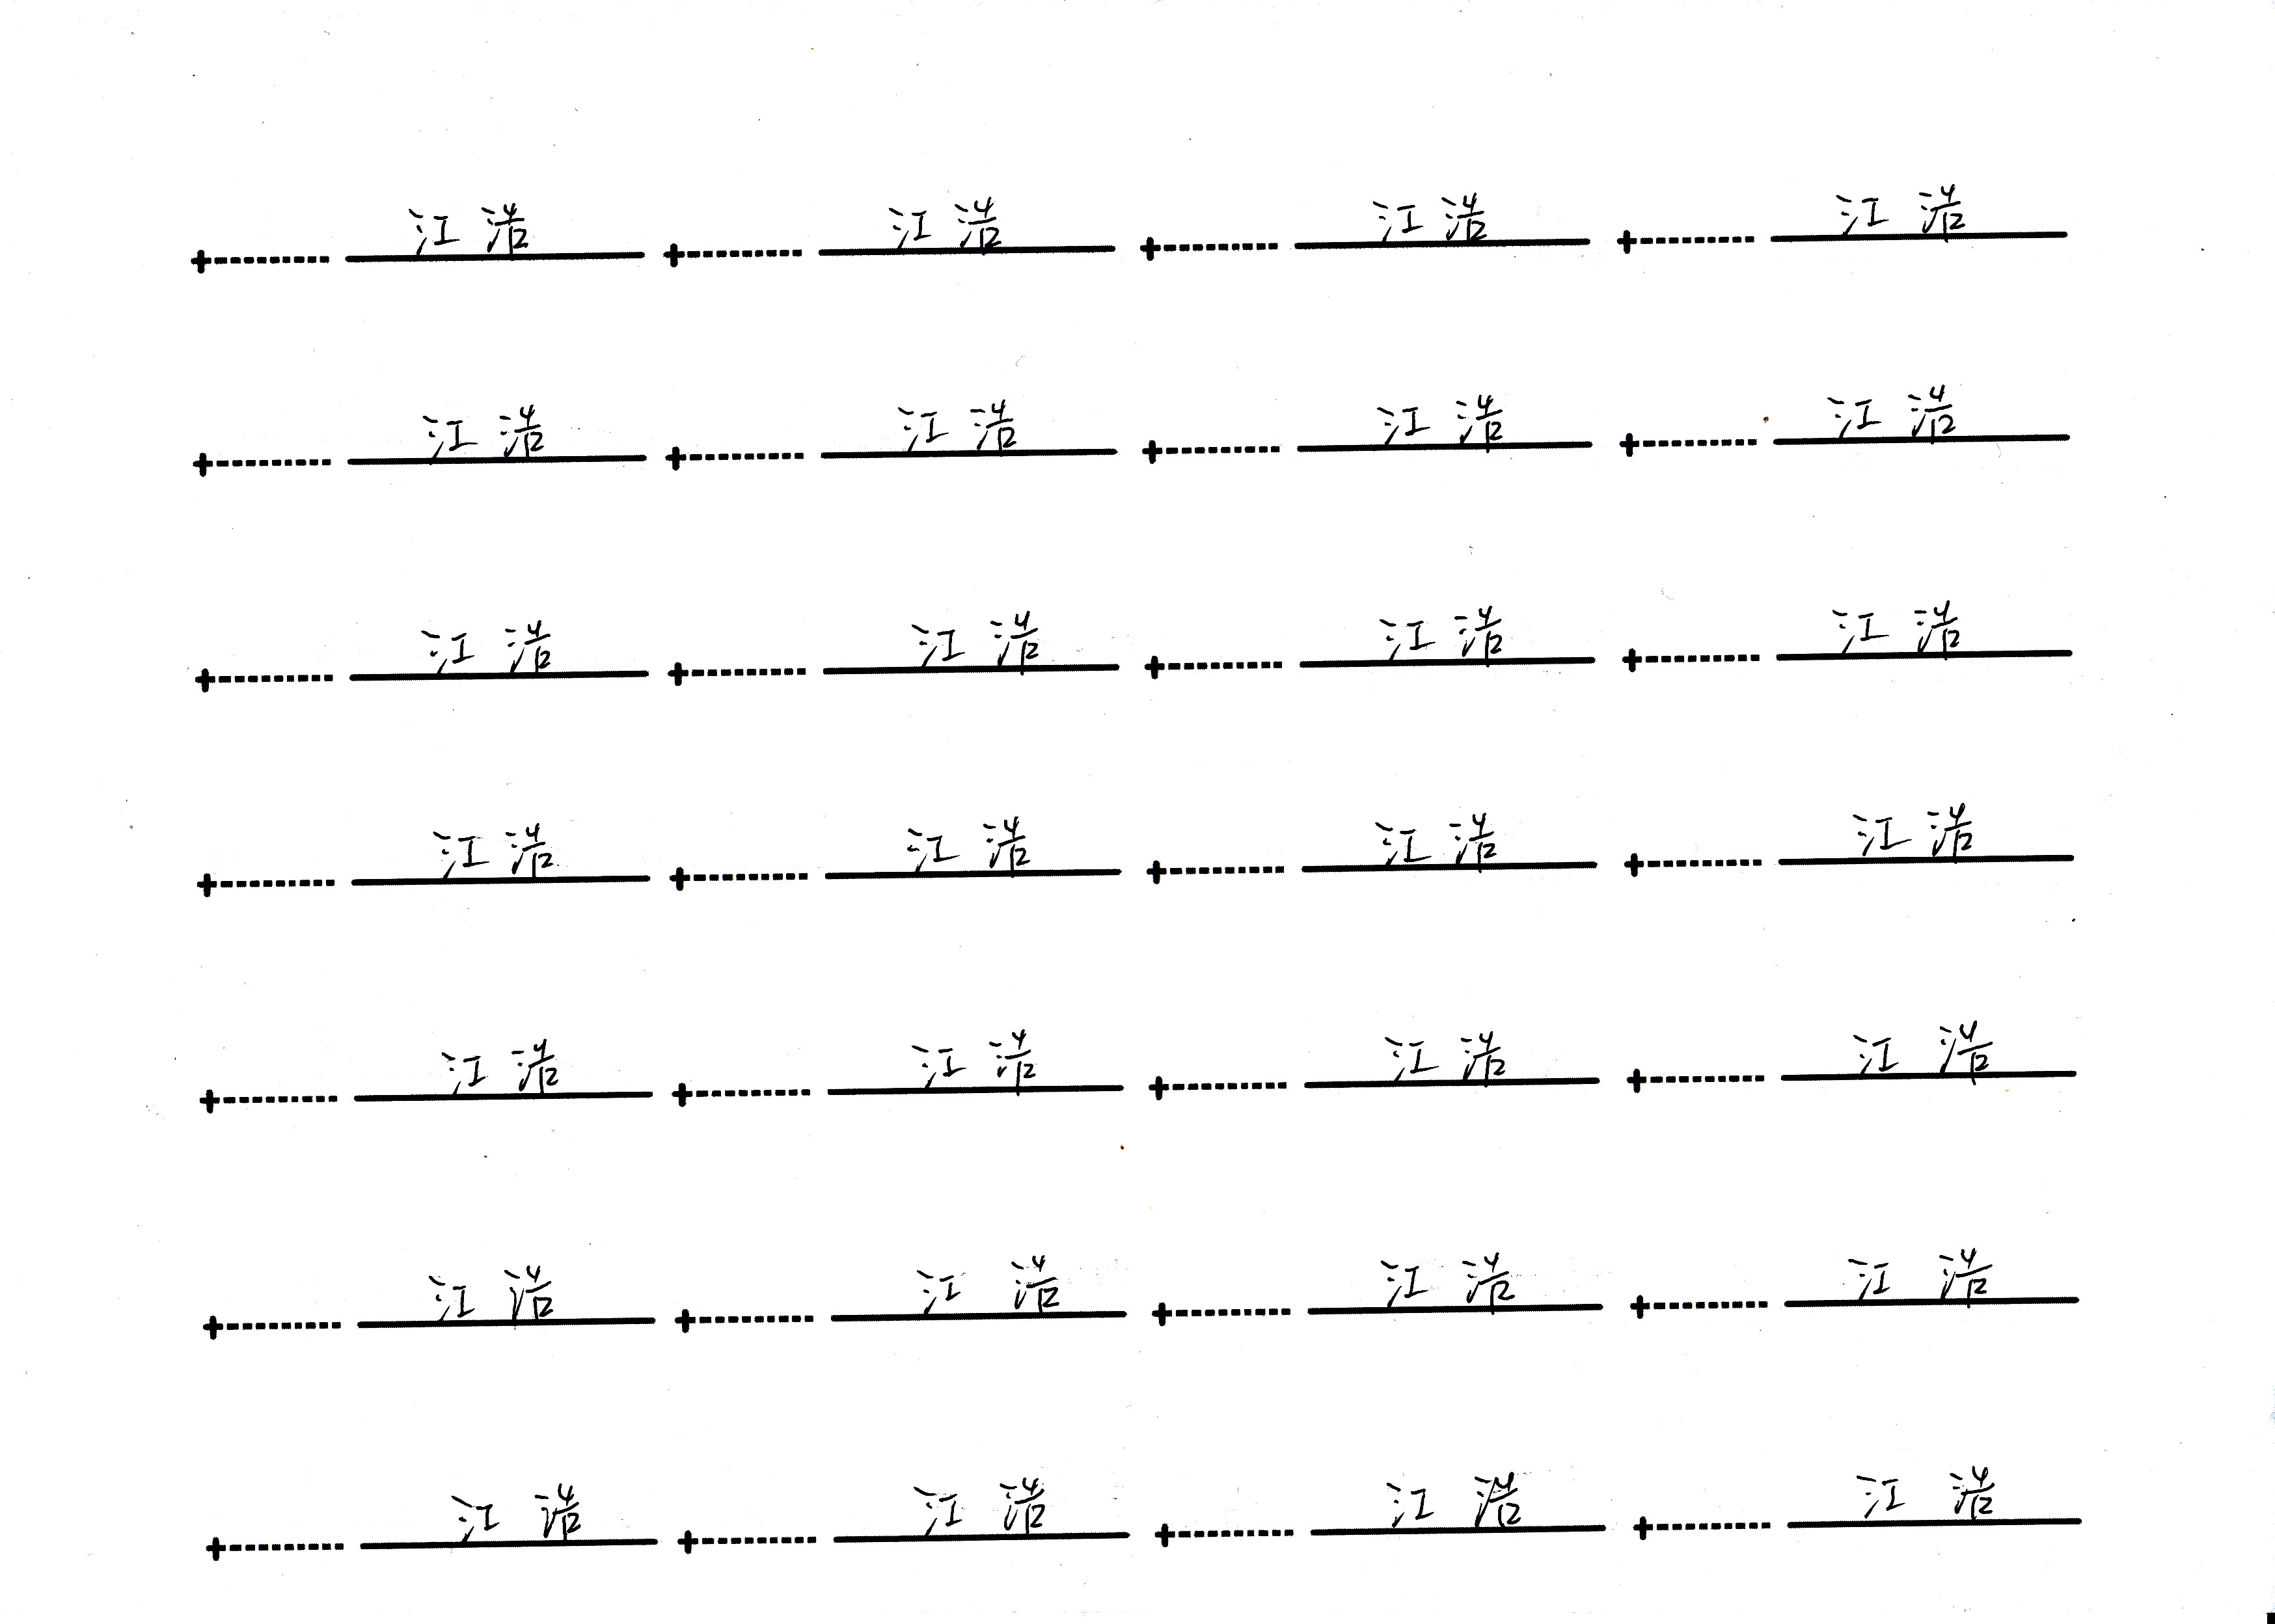 江浩 江浩 江浩 江浩
江浩 江浩 江浩 江浩
江浩 江浩 江浩 江浩
江浩 江浩 江浩 江浩
江浩 江浩 江浩 江浩
江浩 江浩 江浩 江浩
江浩 江浩 江浩 江浩